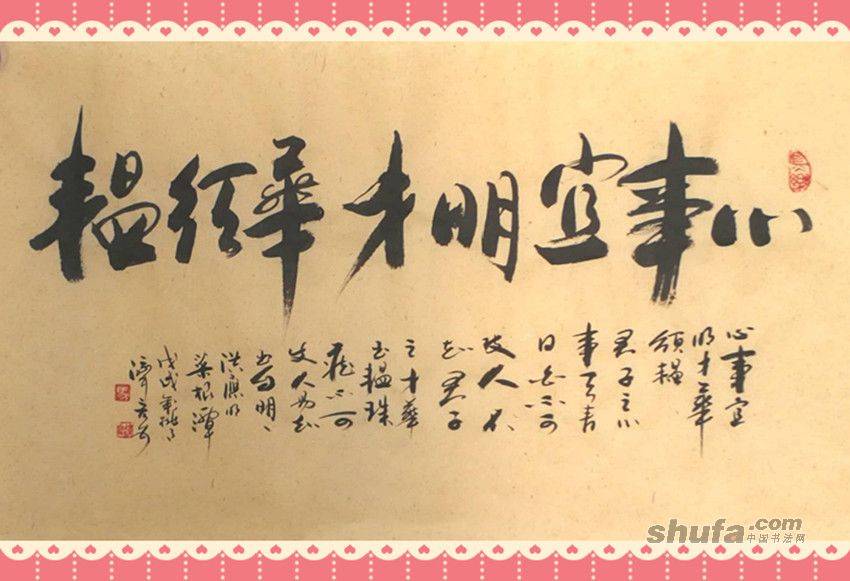 心事宜明才華須韞
心事宜
明才華
須韞
君子之心
事天青
日白不可
使人不
知君子
之才華
玉韞珠
藏不可
使人易知
出自明
洪應明
菜根潭
戊戌年
shufa.com
中国书法网